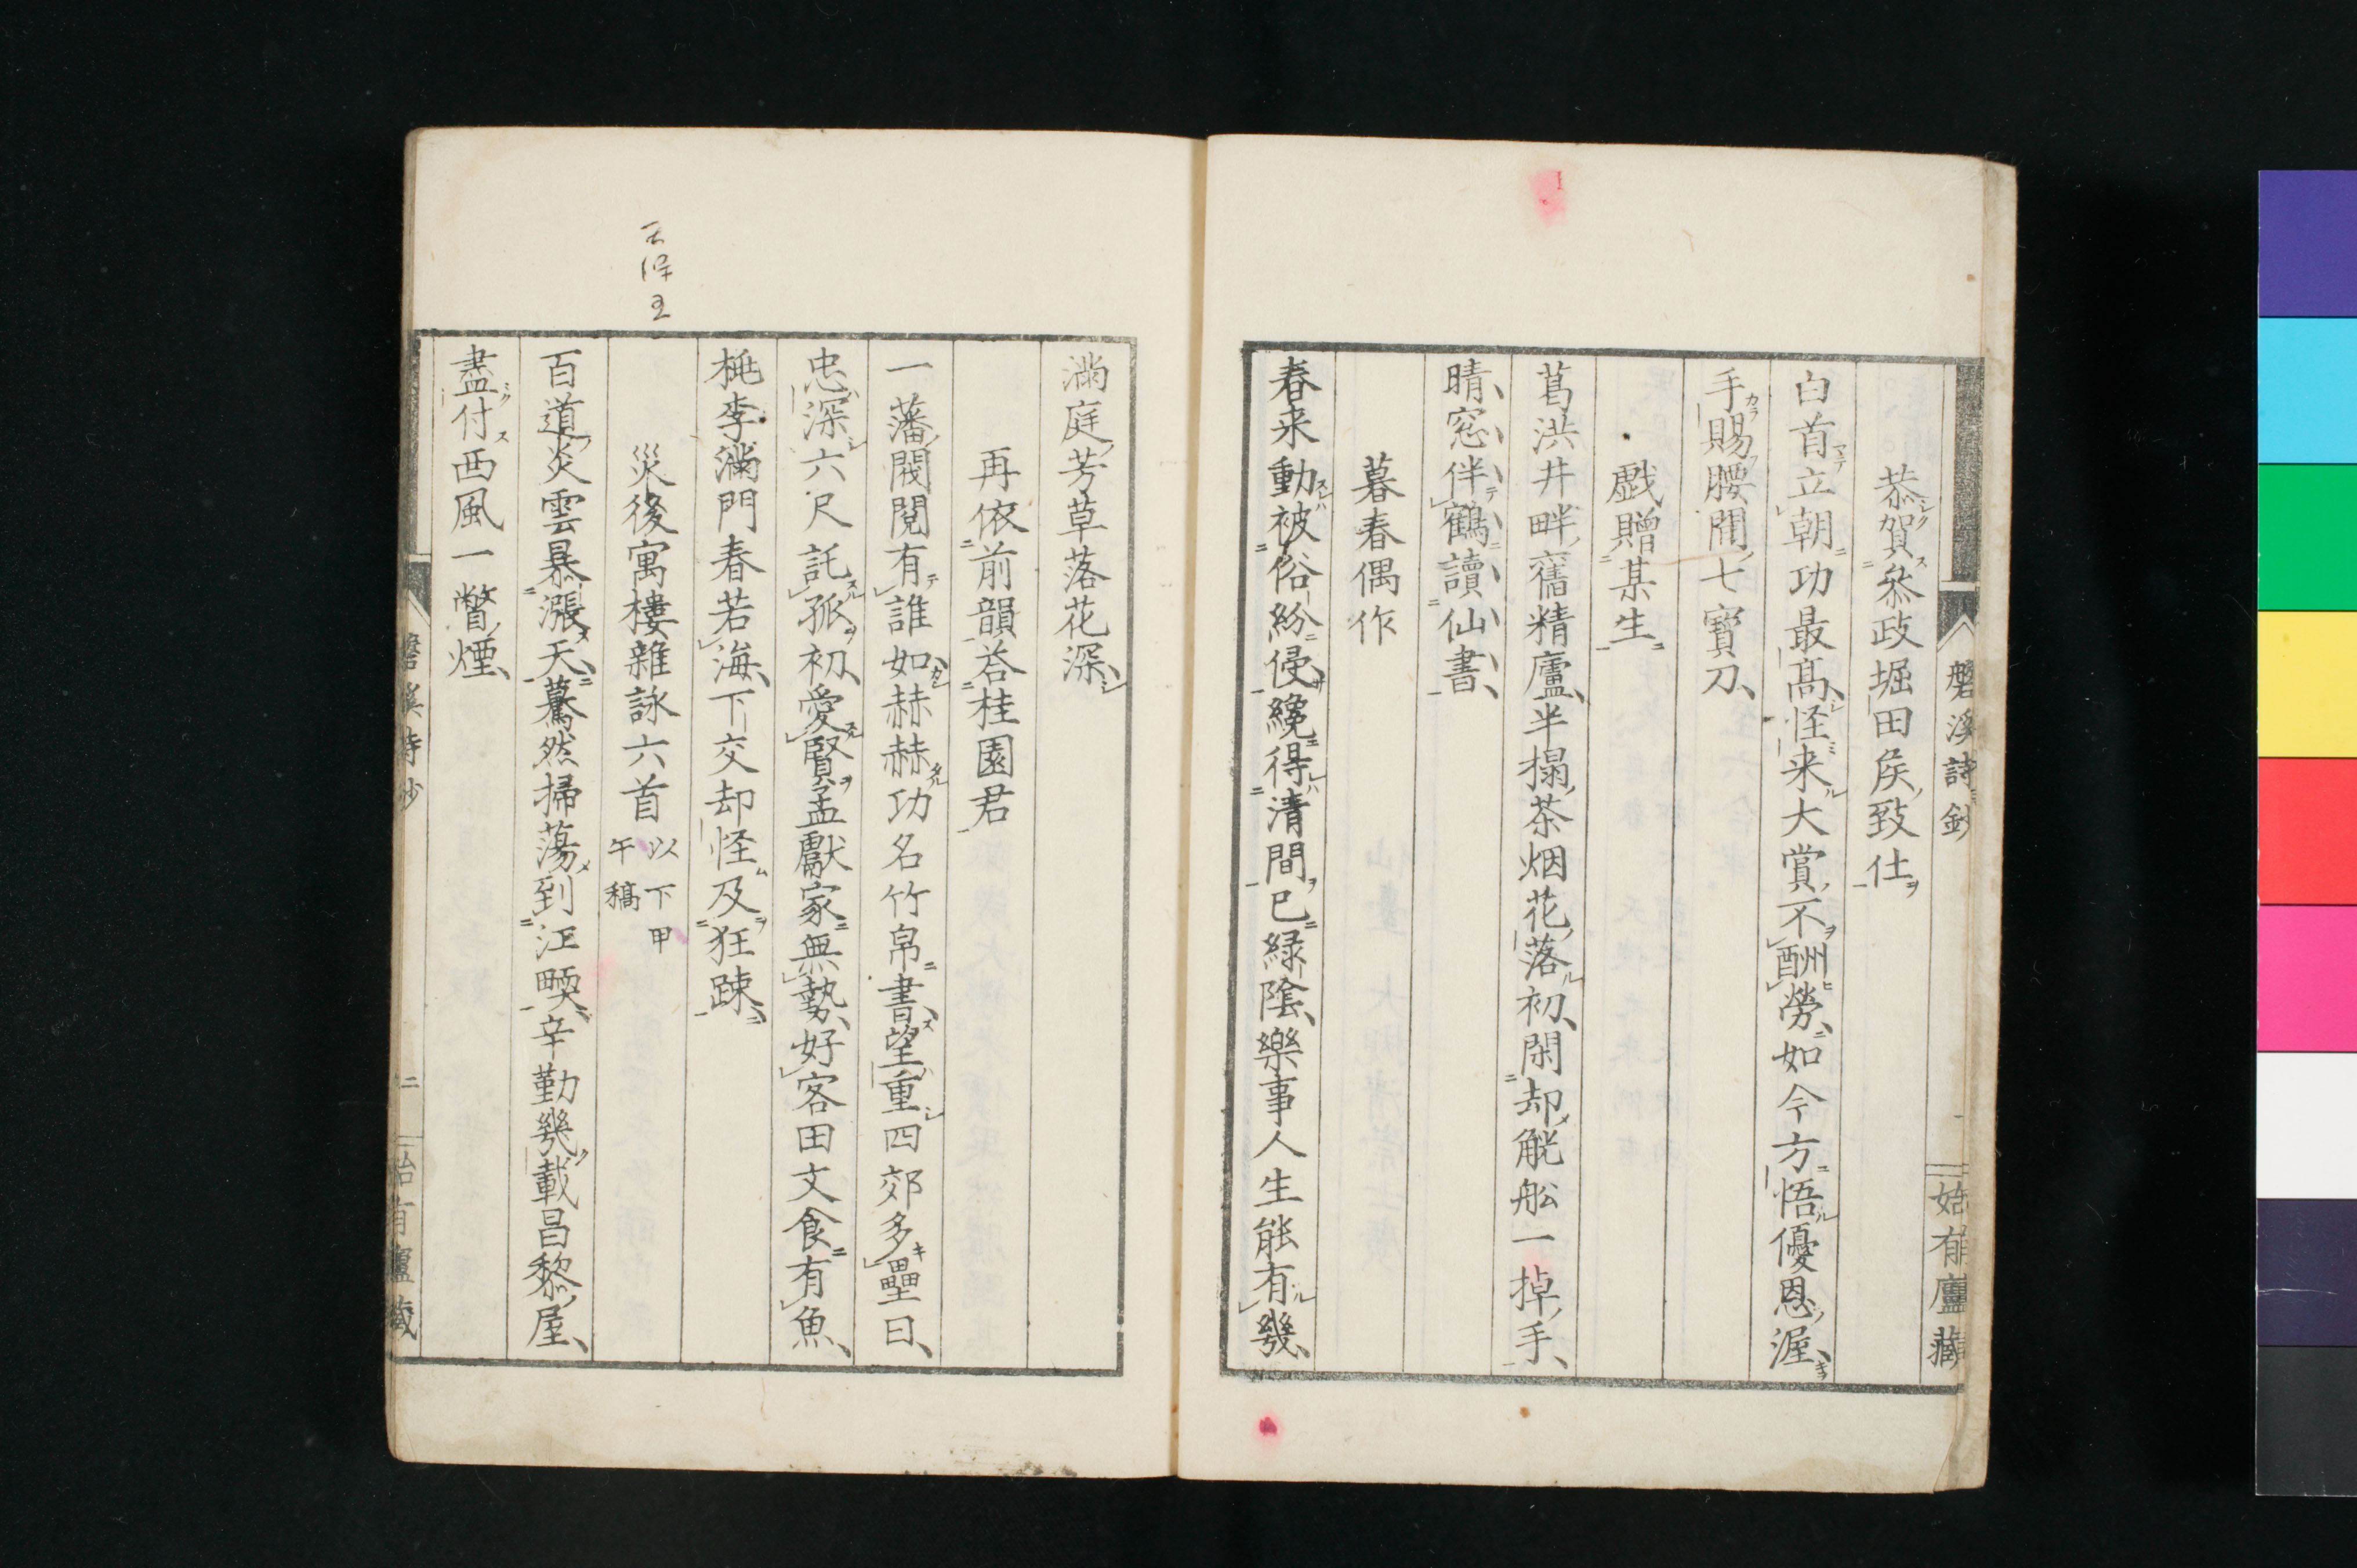 磐溪詩鈔
始有廬藏
恭賀參政堀田侯致仕
白首立朝功最高怪来大賞不酬勞如今方悟優恩渥
手賜腰間七寶刀
戯贈某生
葛洪井畔舊精廬半榻茶烟花落初閑却觥船一掉手
晴窓伴鶴讀仙書
暮春偶作
春来動被俗紛侵纔得清間已緑陰樂事人生能有幾
滿庭芳草落花深
再依前韻荅桂園君
一藩閥閲有誰如赫赫功名竹帛書望重四郊多壘日
忠深六尺託孤初愛賢孟獻家無勢好客田文食有魚
桃李滿門春若海下交却怪及狂踈
災後寓樓雜詠六首 以下甲午稿
百道炎雲暴漲天驀然掃蕩到江壖辛勤幾載昌黎屋
盡付西風一瞥煙
磐溪詩鈔
二
始有廬藏